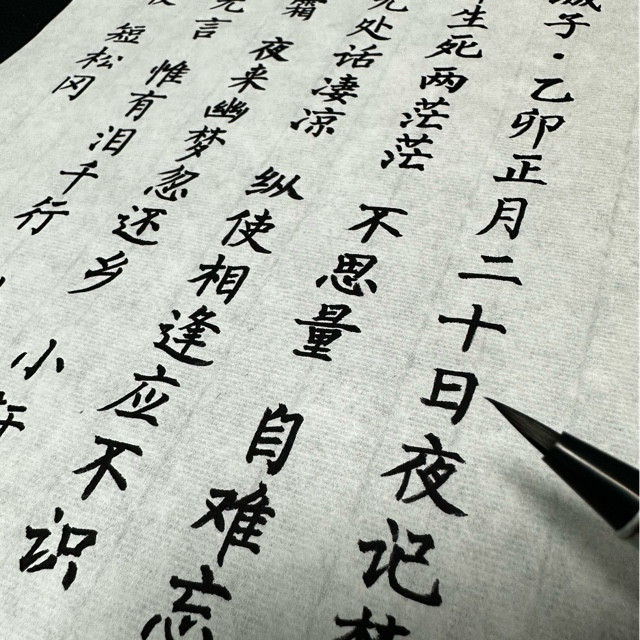 城子·乙卯正月二十日夜记梦
生死两茫茫 不思量 自难忘
无处话凄凉 纵使相逢应不识
霜 夜来幽梦忽还乡 小轩
无言 惟有泪千行
短松冈